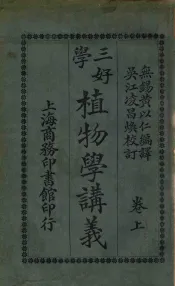 無錫黃以仁編譯
吳江凌昌煥校訂
卷上
三好
學
植物學講義
上海商務印書館印行